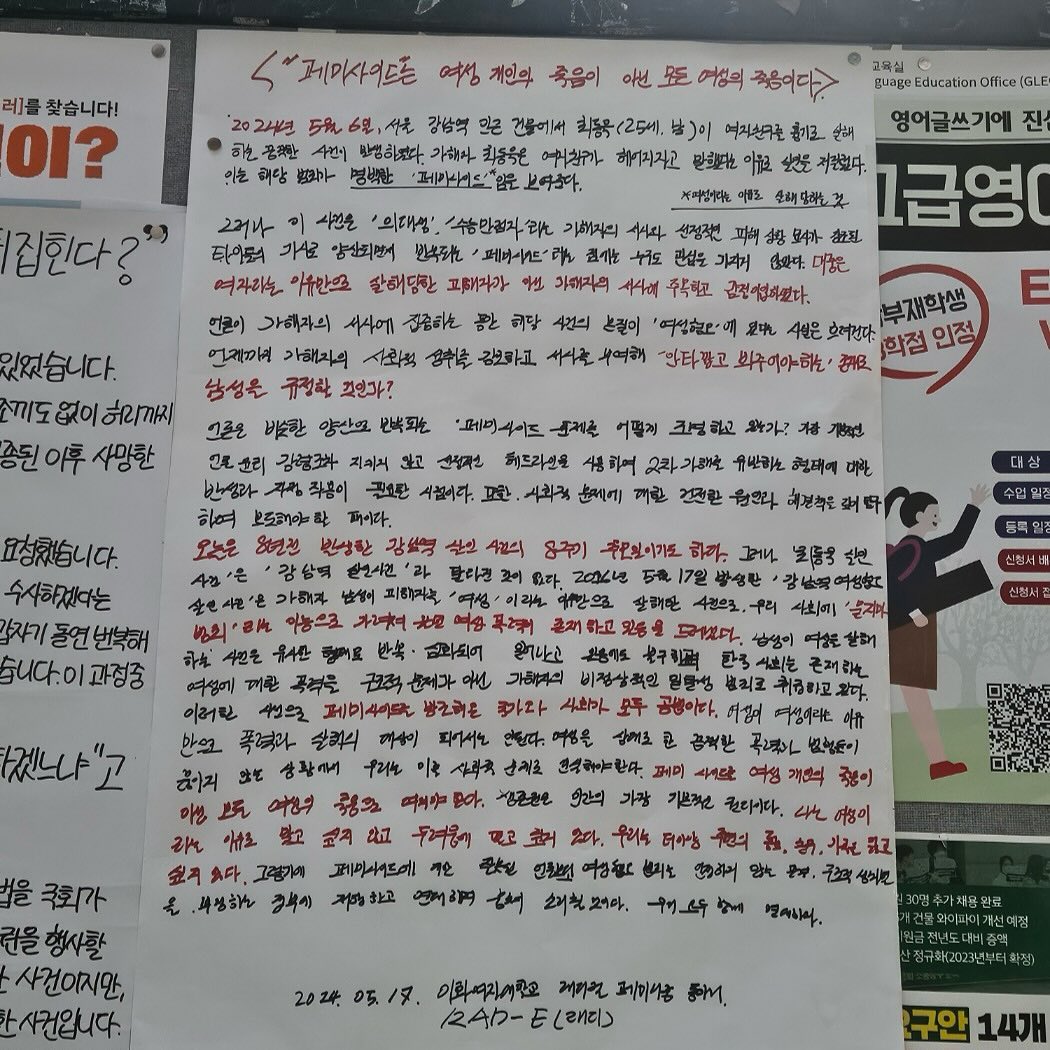 <"페미사이드는 여성 개인의 죽음이 아닌 모든 여성의 죽음이다>
2024년 5월 6일, 서울 강남역 인근 건물에서 최동욱(25세, 남)이 여자친구를 흉기로 살해
하는 끔찍한 사건이 발생하였다. 가해자 최동욱은 여자친구가 헤어지자고 말했다는 이유로 살인을 저질렀다.
이는 해당 범죄가 명백한 '페미사이드'*임을 보여준다.
*여성이라는 이유로 살해 당하는 것
그러나 이 사건은 '의대생', '수능만점자'라는 가해자의 서사와 선정적인 피해 상황 묘사가 강조된
타이틀의 기사로 양산되면서 반복되는 '페미사이드'라는 논제는 누구도 관심을 가지지 않았다. 대중은
여자라는 이유만으로 살해당한 피해자가 아닌 가해자의 서사에 주목하고 감정이입하였다.
언론이 가해자의 서사에 집중하는 동안 해당 사건의 본질이 '여성혐오'에 있다는 사실은 흐려진다.
언제까지 가해자의 사회적 성취를 강조하고 서사를 부여해 '안타깝고 봐주어야하는' 존재로
남성을 규정할 것인가?
언론은 비슷한 양산으로 반복되는 '페미사이드' 문제를 어떻게 조명하고 있는가? 가장 기본적인
언론 윤리 강령조차 지키지 않고 선정적인 헤드라인을 사용하여 2차 가해를 유발하는 형태에 대한
반성과 자정 작용이 필요한 시점이다. 또한, 사회적 문제에 대한 건전한 원인과 해결책을 깊이 탐구
하여 보도해야 할 때이다.
오늘은 8년전 발생한 강남역 살인 사건의 8주기 추모일이기도 하다. 그러나 '최동욱 살인
사건'은 '강남역 살인사건'과 달라진 것이 없다. 2016년 5월 17일 발생한 '강남역 여성혐오
살인 사건'은 가해자 남성이 피해자를 '여성'이라는 이유만으로 살해한 사건으로, 우리 사회에 '묻지마
범죄'라는 이름으로 가려져 있던 여성 폭력이 존재하고 있음을 드러냈다. 남성이 여성을 살해
하는 사건은 유사한 형태로 반복·심화되어 일어나고 있음에도 불구하고 한국 사회는 존재하는
여성에 대한 폭력을 구조적 문제가 아닌 가해자의 비정상적인 일탈성 범죄로 취급하고 있다.
이러한 시선으로 페미사이드를 방조하는 국가와 사회가 모두 공범이다. 여성이 여성이라는 이유
만으로 폭력과 살해의 대상이 되어서는 안된다. 여성을 상대로 한 끔찍한 폭력과 범행들이
끊이지 않는 상황에서 우리는 이를 사회적 문제로 인식해야한다. 페미사이드는 여성 개인의 죽음이
아닌 모든 여성의 죽음으로 여겨야 한다. 생존권은 인간의 가장 기본적인 권리이다. 나는 여성이
라는 이유로 맞고 싶지 않고 두려움에 떨고 싶지 않다. 우리는 더이상 주변의 친구, 가족을 잃고
싶지 않다. 그렇기에 페미사이드에 여성혐오 범죄를 인정하지 않는 문제, 구조적 성차별
을 부정하는 정부에 저항하고 연대하며 소리칠 것이다. 우리 모두 함께 연대하자.
2024. 05. 17. 이화여자대학교 래디컬 페미니즘 동아리
RAD-E (래디)
러]를 찾습니다!
이?
뒤집힌다?"
있었습니다.
조끼도 없이 허리까지
종된 이후 사망한
요청했습니다.
수사하겠다는
갑자기 돌연 번복해
습니다. 이 과정중
하겠느냐"고
법을 국회가
권을 행사할
사건이지만,
한 사건입니다.
교육실
guage Education Office (GLE
영어글쓰기에 진심
고급영어
부재학생
학점 인정
대 상
수업 일정
등록 일정
신청서 배
신청서 접
원 30명 추가 채용 완료
개 건물 와이파이 개선 예정
지원금 전년도 대비 증액
산 정규화(2023년부터 확정)
요구안 14개